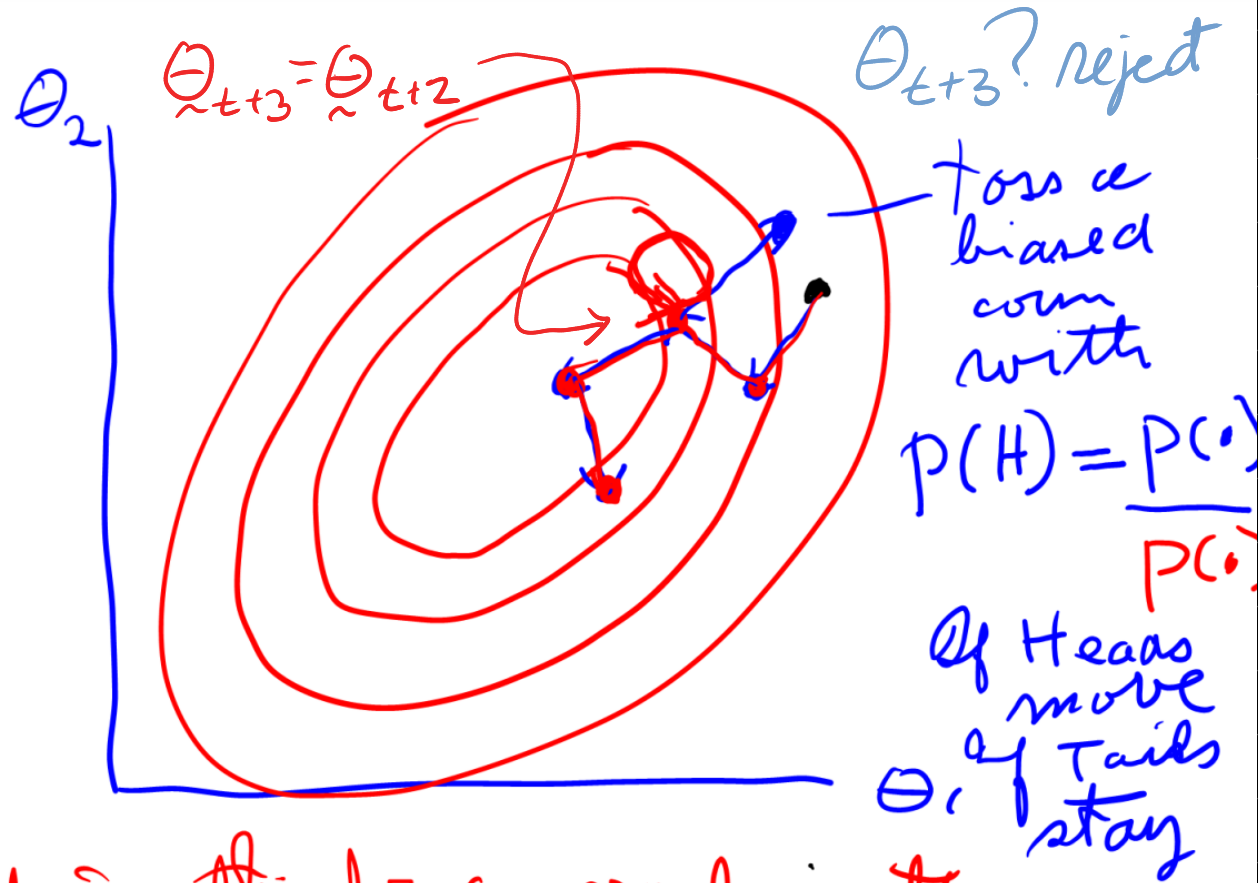 θ̰ₜ₊₃ = θ̰ₜ₊₂
θₜ₊₃? reject
θ₂
toss a
biased
coin
with
P(H) = P(•)
P(•)
If Heads
move
If Tails
stay
θ₁